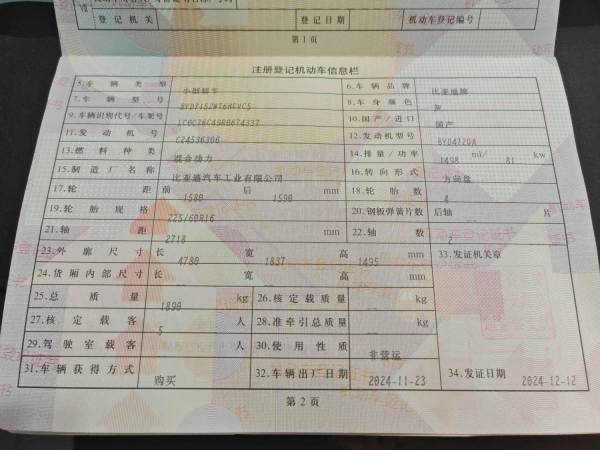 登记机关 登记日期 机动车登记编号
第1页
注册登记机动车信息栏
5.车辆类型 小型轿车 6.车辆品牌 比亚迪牌
7.车辆型号 8.车身颜色 灰
9.车辆识别代号/车架号 10.国产/进口 国产
11.发动机号 12.发动机型号 BYD472QA
13.燃料种类 混合动力 14.排量/功率 1498 ml/ 81 kw
15.制造厂名称 比亚迪汽车工业有限公司 16.转向形式 方向盘
17.轮距 前 1580 后 1590 mm 18.轮胎数 4
19.轮胎规格 225/60R16 20.钢板弹簧片数 后轴 -- 片
21.轴距 2718 mm 22.轴数 2
23.外廓尺寸 长 4780 宽 1837 高 1495 mm 33.发证机关章
24.货厢内部尺寸 长 宽 高 mm
25.总质量 1890 kg 26.核定载质量 -- kg
27.核定载客 5 人 28.准牵引总质量 -- kg
29.驾驶室载客 人 30.使用性质 非营运
31.车辆获得方式 购买 32.车辆出厂日期 2024-11-23 34.发证日期 2024-12-12
第2页